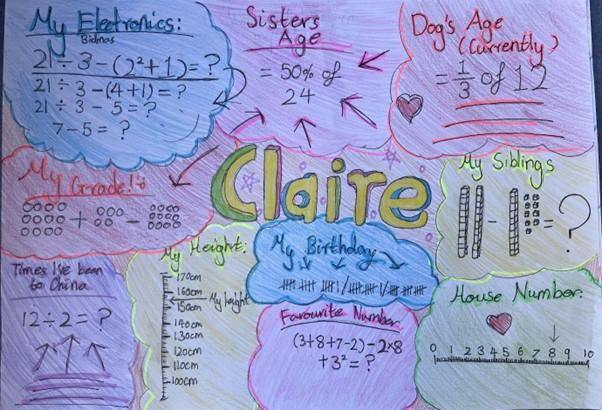 My Electronics:
Bidmas
21 ÷ 3 - (2² + 1) = ?
21 ÷ 3 - (4+1) = ?
21 ÷ 3 - 5 = ?
7 - 5 = ?
Sisters
Age
= 50% of
24
Dog's Age
(Currently)
= 1/3 of 12
My Grade!
+ - 
Claire
My Siblings
- = ?
Times I've been
to China
12 ÷ 2 = ?
My Height:
170cm
160cm
My height
150cm
140cm
130cm
120cm
110cm
100cm
My Birthday
Favourite Number
(3+8+7-2) - 2×8
+ 3² = ?
House Number:
0 1 2 3 4 5 6 7 8 9 10